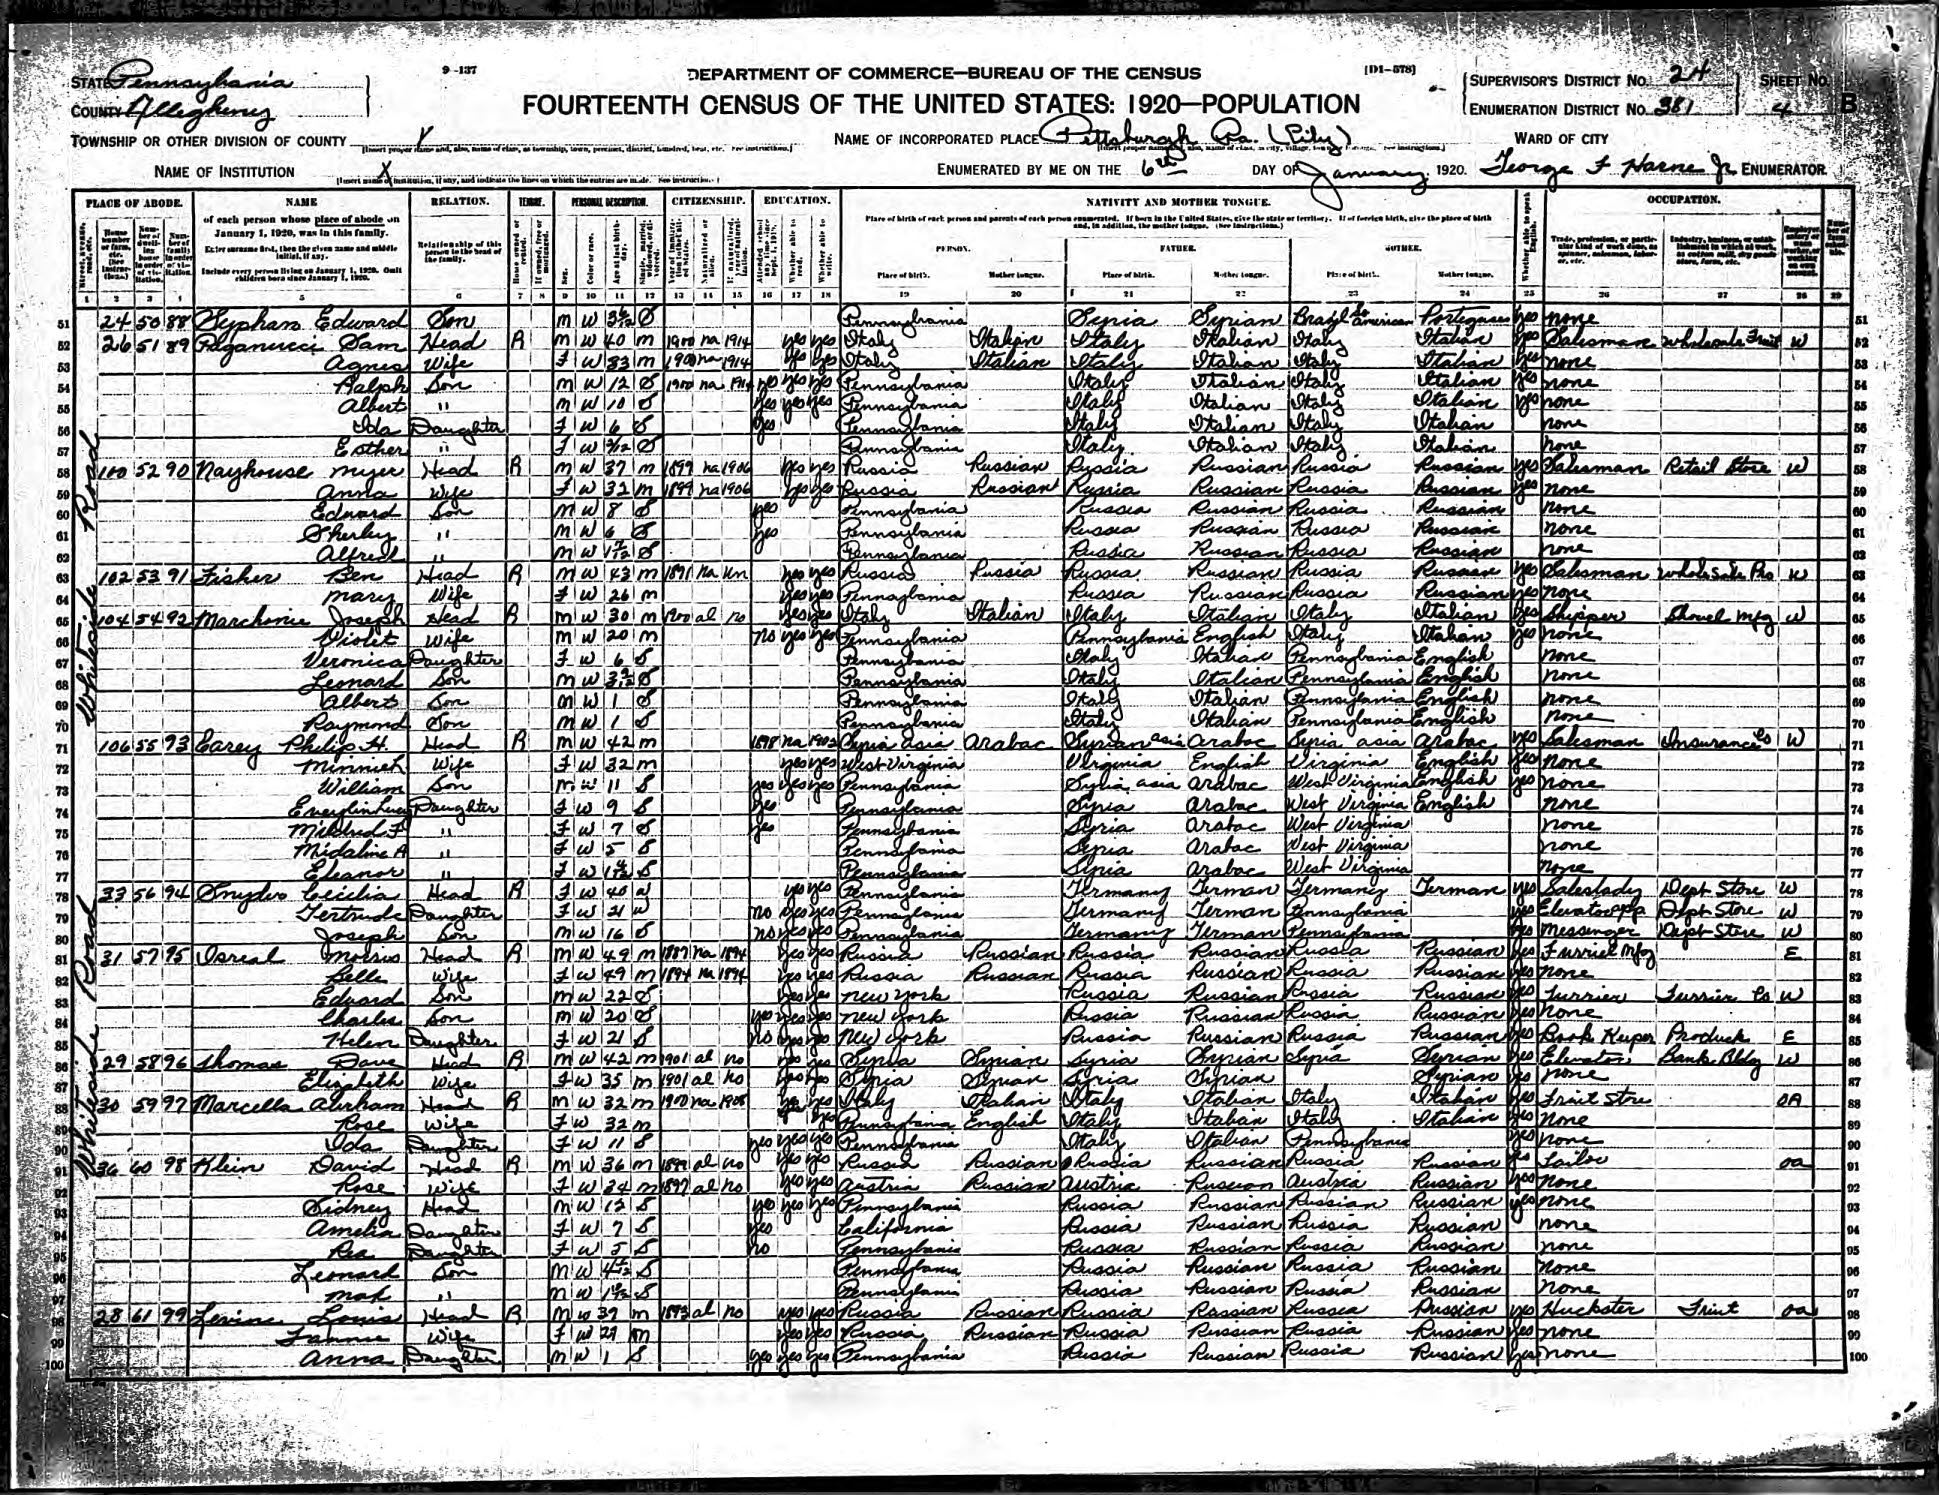 9-137
DEPARTMENT OF COMMERCE—BUREAU OF THE CENSUS
[D1-578]
STATE Pennsylvania
COUNTY Allegheny
FOURTEENTH CENSUS OF THE UNITED STATES: 1920—POPULATION
SUPERVISOR'S DISTRICT No. 24 SHEET No.
ENUMERATION DISTRICT No. 381 4 B
TOWNSHIP OR OTHER DIVISION OF COUNTY X
NAME OF INCORPORATED PLACE Pittsburgh Pa. (City)
WARD OF CITY
NAME OF INSTITUTION X
ENUMERATED BY ME ON THE 6th DAY OF January, 1920. George F Harne Jr ENUMERATOR.
PLACE OF ABODE. NAME RELATION. TENURE. PERSONAL DESCRIPTION. CITIZENSHIP. EDUCATION. NATIVITY AND MOTHER TONGUE. OCCUPATION.
of each person whose place of abode on January 1, 1920, was in this family.
Enter surname first, then the given name and middle initial, if any.
Include every person living on January 1, 1920. Omit children born since January 1, 1920.
Relationship of this person to the head of the family.
Place of birth of each person and parents of each person enumerated. If born in the United States, give the state or territory. If of foreign birth, give the place of birth and, in addition, the mother tongue. (See instructions.)
PERSON. FATHER. MOTHER.
Place of birth. Mother tongue. Place of birth. Mother tongue. Place of birth. Mother tongue.
1 2 3 4 5 6 7 8 9 10 11 12 13 14 15 16 17 18 19 20 21 22 23 24 25 26 27 28 29
Whiteside Road
51 24 50 88 Sypham Edward Son M W 3 S Pennsylvania Syria Syrian Brazil So american Portegases yes none 51
52 26 51 89 Paganucci Sam Head R M W 40 M 1900 na 1914 yes yes Italy Italian Italy Italian Italy Italian yes Salesman Wholesale Fruit W 52
53 Agnes Wife F W 33 M 1900 na 1914 yes yes Italy Italian Italy Italian Italy Italian yes none 53
54 Ralph Son M W 12 S 1900 na 1914 yes yes yes Pennsylvania Italy Italian Italy Italian yes none 54
55 Albert " M W 10 S yes yes yes Pennsylvania Italy Italian Italy Italian yes none 55
56 Ida Daughter F W 6 S yes Pennsylvania Italy Italian Italy Italian none 56
57 Esther " F W S Pennsylvania Italy Italian Italy Italian none 57
58 100 52 90 Nayhouse Myer Head R M W 37 M 1899 na 1906 yes yes Russia Russian Russia Russian Russia Russian yes Salesman Retail Store W 58
59 Anna Wife F W 32 M 1899 na 1906 yes yes Russia Russian Russia Russian Russia Russian yes none 59
60 Edward Son M W 8 S yes Pennsylvania Russia Russian Russia Russian none 60
61 Sherley " M W 6 S yes Pennsylvania Russia Russian Russia Russian none 61
62 Alfred " M W 1 S Pennsylvania Russia Russian Russia Russian none 62
63 102 53 91 Fisher Ben Head R M W 43 M 1891 na un yes yes Russia Russia Russia Russian Russia Russian yes Salesman Wholesale Pro W 63
64 Mary Wife F W 26 M yes yes Pennsylvania Russia Russian Russia Russian yes none 64
65 104 54 92 Marchonie Joseph Head R M W 30 M 1900 al no yes yes Italy Italian Italy Italian Italy Italian yes Shipper Shovel Mfg W 65
66 Violet Wife M W 20 M no yes yes Pennsylvania Pennsylvania English Italy Italian yes none 66
67 Veronica Daughter F W 6 S Pennsylvania Italy Italian Pennsylvania English none 67
68 Leonard Son M W 3 S Pennsylvania Italy Italian Pennsylvania English none 68
69 Albert Son M W 1 S Pennsylvania Italy Italian Pennsylvania English none 69
70 Raymond Son M W 1 S Pennsylvania Italy Italian Pennsylvania English none 70
71 106 55 93 Carey Philip H. Head R M W 42 M 1898 na 1902 Syria asia Arabac Syrian asia Arabac Syria asia Arabac yes Salesman Insurance Co W 71
72 Minnieh Wife F W 32 M yes yes West Virginia Virginia English Virginia English yes none 72
73 William Son M W 11 S yes yes yes Pennsylvania Syria asia Arabac West Virginia English yes none 73
74 Everylin Lucy Daughter F W 9 S yes Pennsylvania Syria Arabac West Virginia English none 74
75 Mildred F " F W 7 S yes Pennsylvania Syria Arabac West Virginia none 75
76 Midaline A " F W 5 S Pennsylvania Syria Arabac West Virginia none 76
77 Eleanor " F W 1 S Pennsylvania Syria Arabac West Virginia none 77
78 33 56 94 Snyder Cecilia Head R F W 40 yes yes Pennsylvania Germany German Germany German yes Saleslady Dept Store W 78
79 Gertrude Daughter F W 21 no yes yes Pennsylvania Germany German Pennsylvania yes Elevator opp Dept Store W 79
80 Joseph Son M W 16 S no yes yes Pennsylvania Germany German Pennsylvania yes Messenger Dept Store W 80
81 31 57 95 Isreal Morris Head R M W 49 M 1887 na 1894 yes yes Russia Russian Russia Russian Russia Russian yes Furrier Mfg E 81
82 Belle Wife F W 49 M 1894 na 1894 yes yes Russia Russian Russia Russian Russia Russian yes none 82
83 Edward Son M W 22 S yes yes New York Russia Russian Russia Russian yes Furrier Furrier Co W 83
84 Charles Son M W 20 S yes yes yes New York Russia Russian Russia Russian yes none 84
85 Helen Daughter F W 21 S no yes yes New York Russia Russian Russia Russian yes Book Keeper Produck E 85
86 29 58 96 Thomas Dave Head R M W 42 M 1901 al no yes yes Syria Syrian Syria Syrian Syria Syrian yes Elevator Bank Bldg W 86
87 Elizabeth Wife F W 35 M 1901 al no yes yes Syria Syrian Syria Syrian Syrian yes none 87
88 30 59 97 Marcella Abrham Head R M W 32 M 1900 na 1908 yes yes Italy Italian Italy Italian Italy Italian yes Fruit Stre OA 88
89 Rose Wife F W 32 M yes Pennsylvania English Italy Italian Italy Italian yes none 89
90 Ida Daughter F W 11 S yes yes yes Pennsylvania Italy Italian Pennsylvania yes none 90
91 36 60 98 Klein David Head R M W 36 M 1899 al no yes yes Russia Russian Russia Russian Russia Russian yes Tailor oa 91
92 Rose Wife F W 34 M 1897 al no yes yes Austria Russian Austria Russian Austria Russian yes none 92
93 Sidney Head M W 12 S yes yes yes Pennsylvania Russia Russian Russian Russian yes none 93
94 Amelia Daughter F W 7 S yes California Russia Russian Russia Russian none 94
95 Rea Daughter F W 5 S no Pennsylvania Russia Russian Russia Russian none 95
96 Leonard Son M W 4 S Pennsylvania Russia Russian Russia Russian none 96
97 Mak " M W 1 S Pennsylvania Russia Russian Russia Russian none 97
98 28 61 99 Levine Louis Head R M W 39 M 1893 al no yes yes Russia Russian Russia Russian Russia Russian yes Huckster Fruit oa 98
99 Fannie Wife F W 29 M yes yes Russia Russian Russia Russian Russia Russian yes none 99
100 Anna Daughter M W 1 S yes yes yes Pennsylvania Russia Russian Russia Russian yes none 100